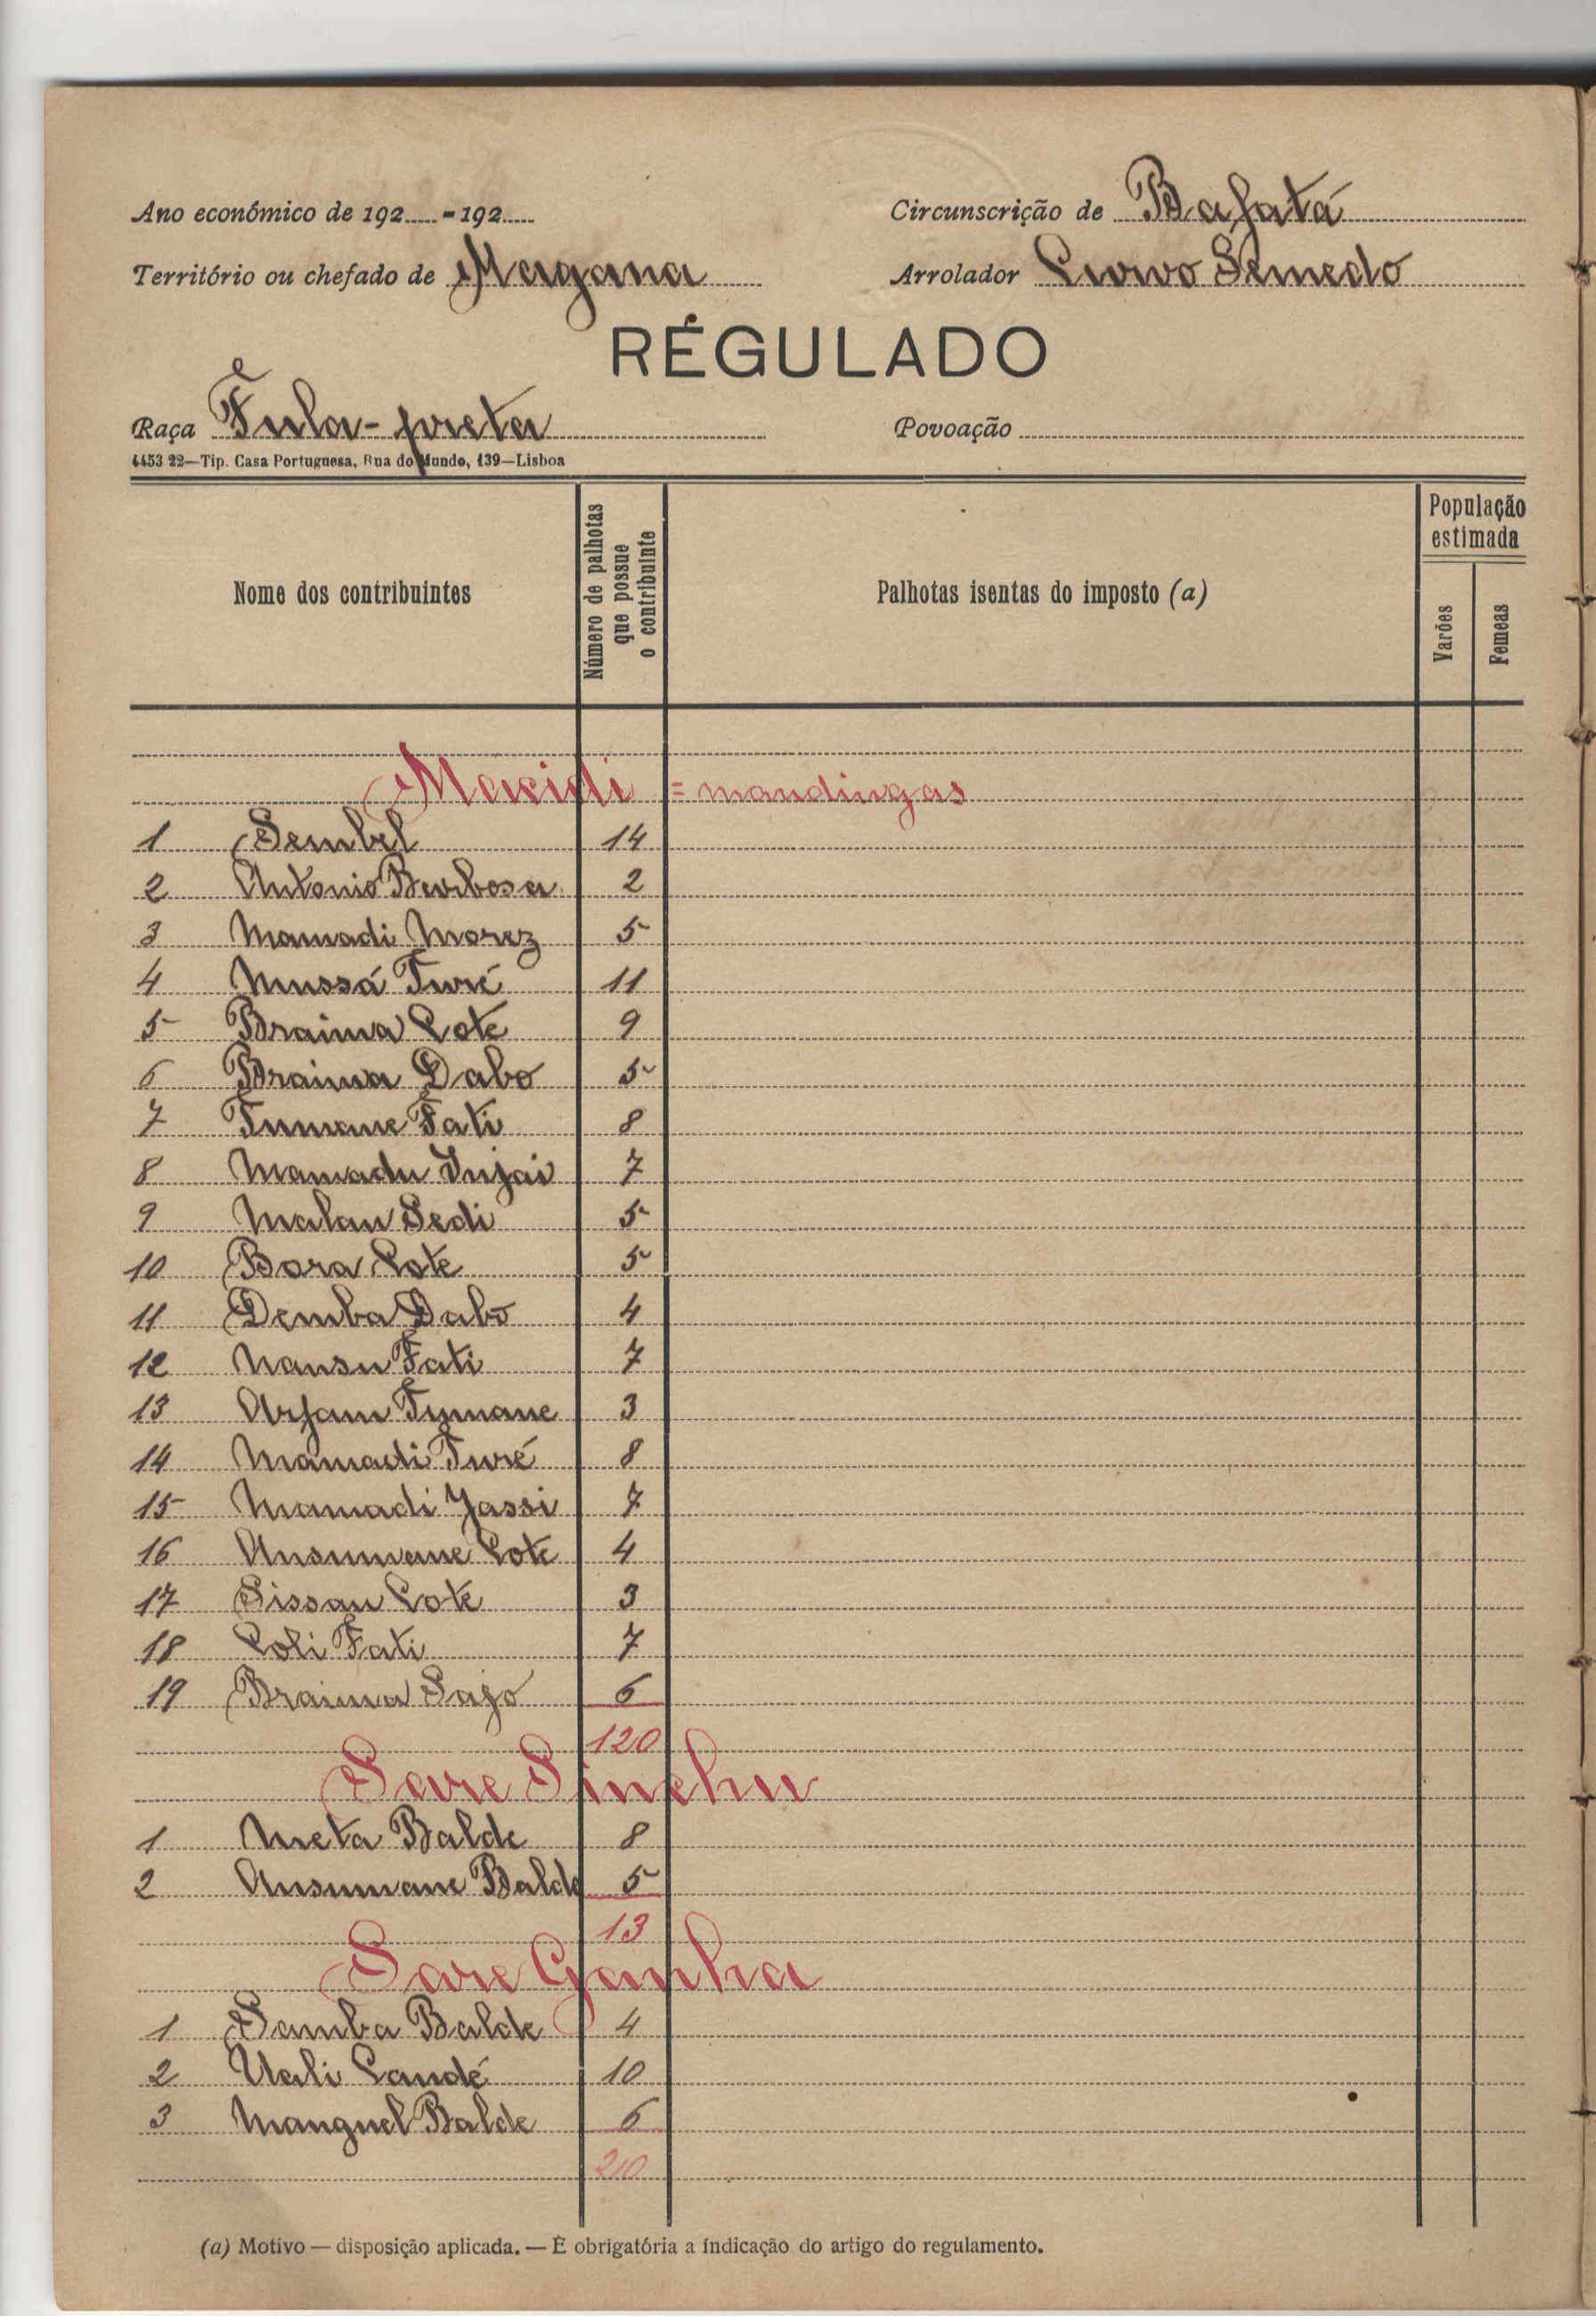 Ano económico de 192..... - 192..... Circunscrição de Bafatá
Território ou chefado de Magana Arrolador Livivo Semedo
RÉGULADO
Raça Fula-preta Povoação
4453 22—Tip. Casa Portuguesa, Rua do Mundo, 139—Lisboa
Nome dos contribuintes Número de palhotas que possue o contribuinte Palhotas isentas do imposto (a) População estimada Varões Femeas
= mandingas
1 Sembel 14
2 Antonio Barbosa 2
3 Mamadi Morez 5
4 Mussá Turé 11
5 Braima Cote 9
6 Braima Dabo 5
7 Tumane Fati 8
8 Mamadu Injai 7
9 Malan Sedi 5
10 Bora Cote 5
11 Demba Dabo 4
12 Nansu Fati 7
13 Arfam Tumane 3
14 Mamadi Turé 8
15 Mamadi Jassi 7
16 Ansumane Cote 4
17 Sissau Cote 3
18 Coli Fati 7
19 Braima Sajo 6
120
Sare Sinchu
1 Meta Balde 8
2 Ansumane Balde 5
13
Sare Ganha
1 Samba Balde 4
2 Uali Candé 10
3 Manguel Balde 6
20
(a) Motivo — disposição aplicada. — É obrigatória a indicação do artigo do regulamento.